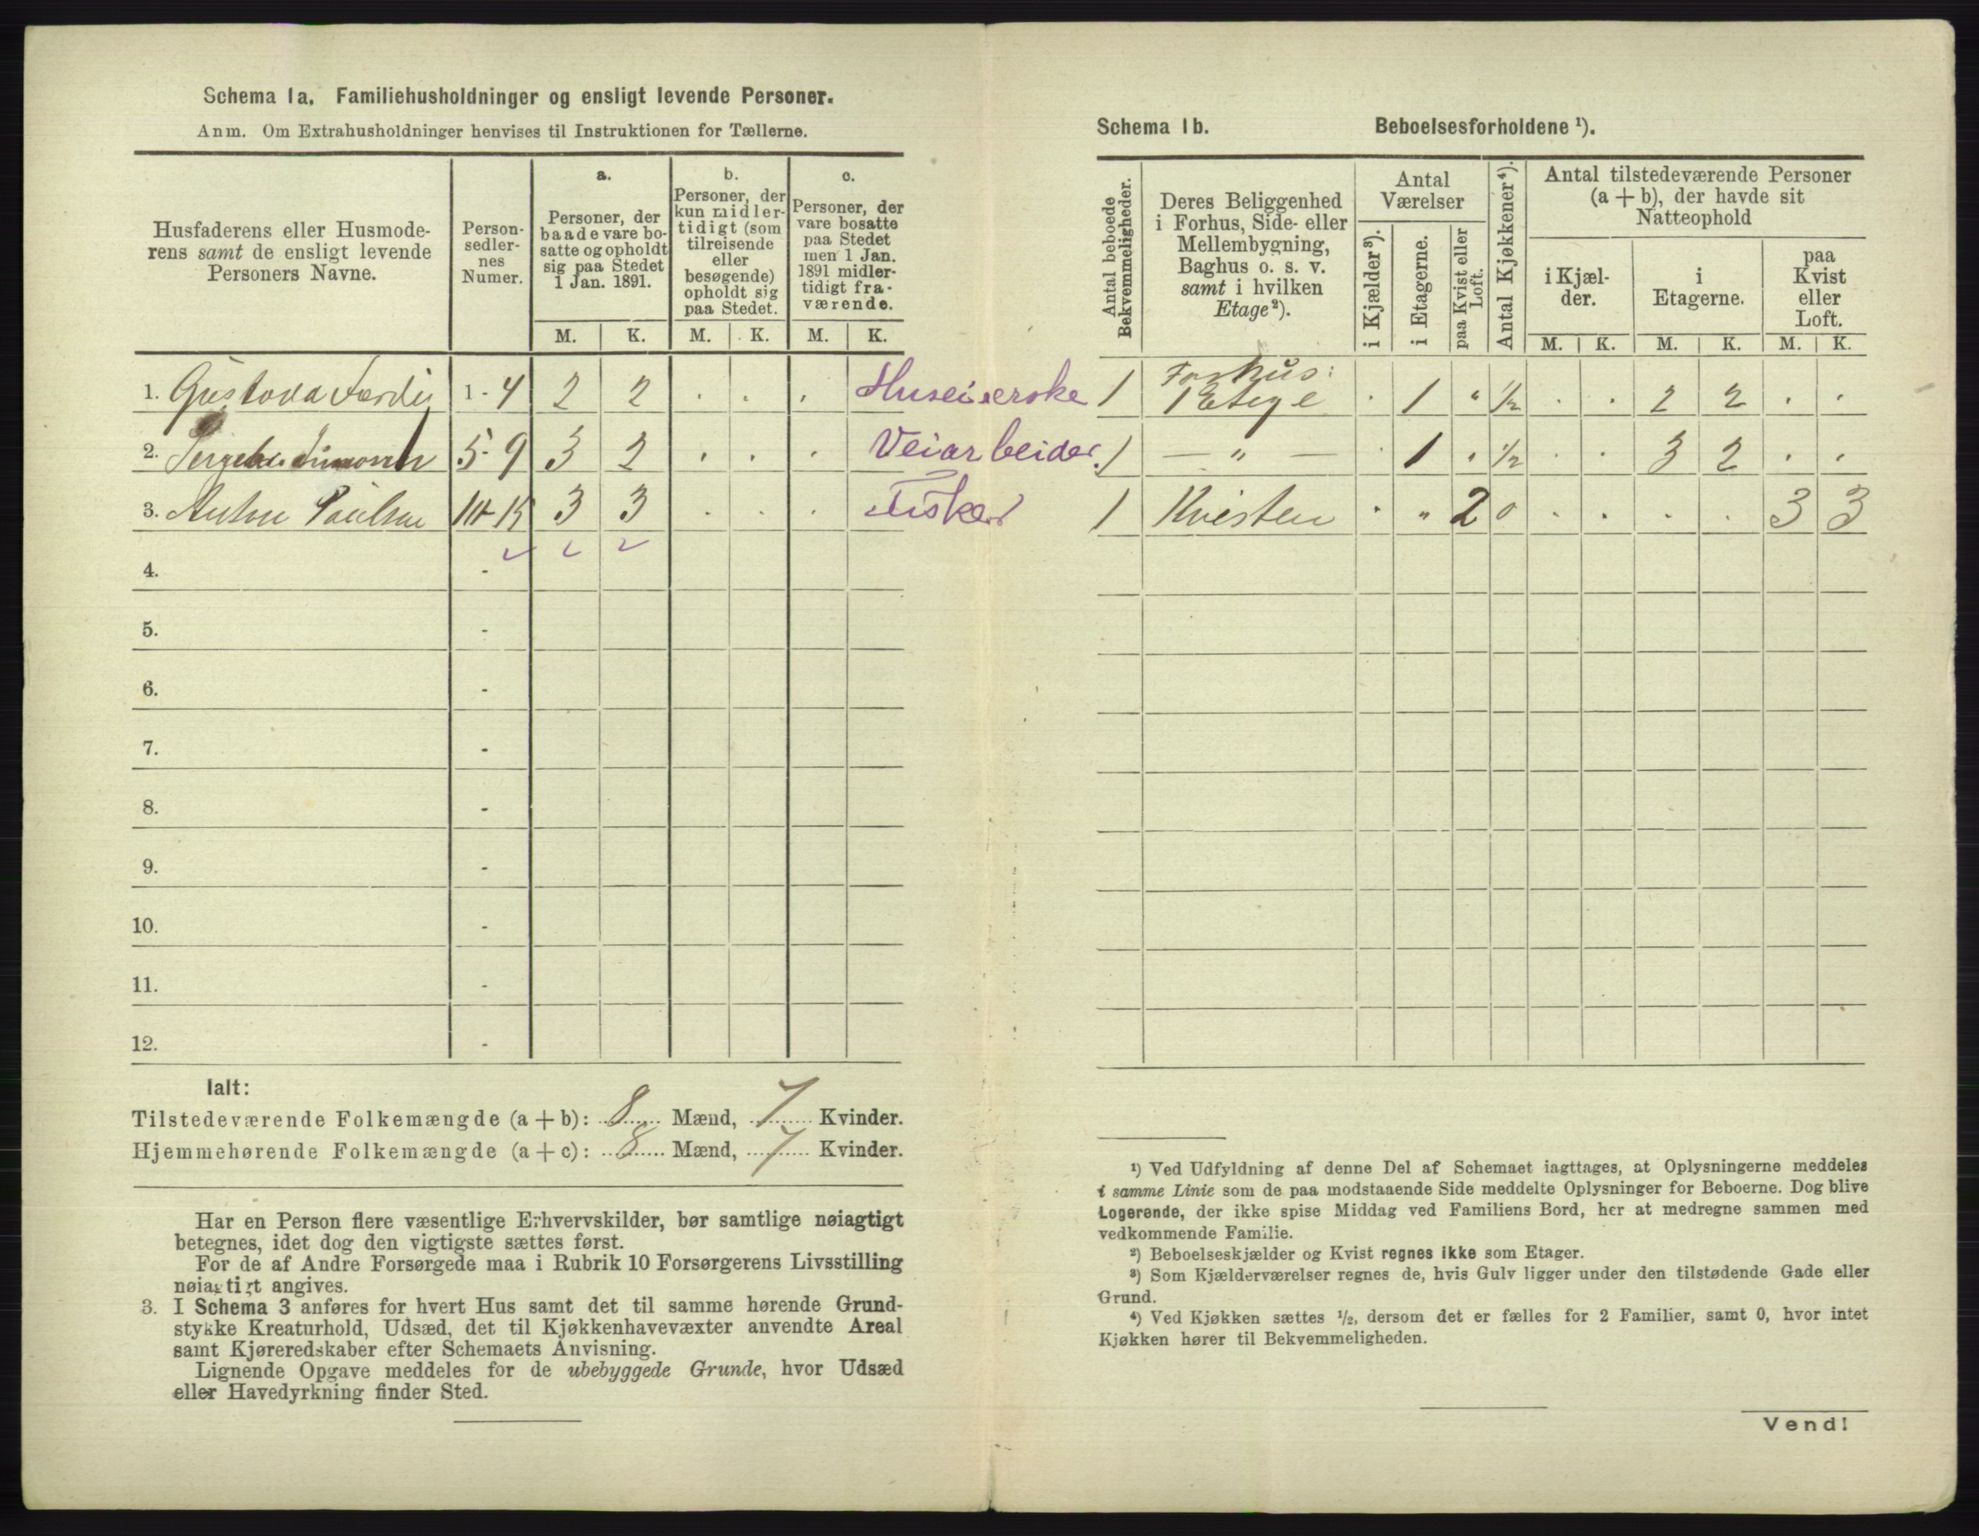 Schema 1a. Familiehusholdninger og ensligt levende Personer.
Anm. Om Extrahusholdninger henvises til Instruktionen for Tællerne.
Husfaderens eller Husmoderens samt de ensligt levende Personers Navne.
Person-sedler-nes Numer.
a. Personer, der baade vare bosatte og opholdt sig paa Stedet 1 Jan. 1891.
b. Personer, der kun midlertidigt (som tilreisende eller besøgende) opholdt sig paa Stedet.
c. Personer, der vare bosatte paa Stedet men 1 Jan. 1891 midlertidigt fraværende.
M. K. M. K. M. K.
1. Gustova 1-4 2 2 . . . Huseierske
2. 5-9 3 2 . . . Veiarbeider
3. Anton Paulsen 10-15 3 3 . . . Fisker
4. -
5. -
6. -
7. -
8. -
9. -
10. -
11. -
12. -
Ialt:
Tilstedeværende Folkemængde (a + b): 8 Mænd, 7 Kvinder.
Hjemmehørende Folkemængde (a + c): 8 Mænd, 7 Kvinder.
Har en Person flere væsentlige Erhvervskilder, bør samtlige nøiagtigt
betegnes, idet dog den vigtigste sættes først.
For de af Andre Forsørgede maa i Rubrik 10 Forsørgerens Livsstilling
nøiagtigt angives.
3. I Schema 3 anføres for hvert Hus samt det til samme hørende Grund-
stykke Kreaturhold, Udsæd, det til Kjøkkenhavevæxter anvendte Areal
samt Kjøreredskaber efter Schemaets Anvisning.
Lignende Opgave meddeles for de ubebyggede Grunde, hvor Udsæd
eller Havedyrkning finder Sted.
Schema 1b. Beboelsesforholdene ¹).
Antal beboede Bekvemmeligheder.
Deres Beliggenhed i Forhus, Side- eller Mellembygning, Baghus o. s. v. samt i hvilken Etage²).
Antal Værelser
i Kjælder³).
i Etagerne.
paa Kvist eller Loft.
Antal Kjøkkener⁴).
Antal tilstedeværende Personer (a + b), der havde sit Natteophold
i Kjælder.
i Etagerne.
paa Kvist eller Loft.
M. K. M. K. M. K.
1 Forhus: 1 Etage . 1 " ½ . . 2 2 . .
1 — " — . 1 " ½ . . 3 2 . .
1 Kvisten . " 2 0 . . . . 3 3
¹) Ved Udfyldning af denne Del af Schemaet iagttages, at Oplysningerne meddeles
i samme Linie som de paa modstaaende Side meddelte Oplysninger for Beboerne. Dog blive
Logerende, der ikke spise Middag ved Familiens Bord, her at medregne sammen med
vedkommende Familie.
²) Beboelseskjælder og Kvist regnes ikke som Etager.
³) Som Kjælderværelser regnes de, hvis Gulv ligger under den tilstødende Gade eller
Grund.
⁴) Ved Kjøkken sættes ½, dersom det er fælles for 2 Familier, samt 0, hvor intet
Kjøkken hører til Bekvemmeligheden.
Vend!